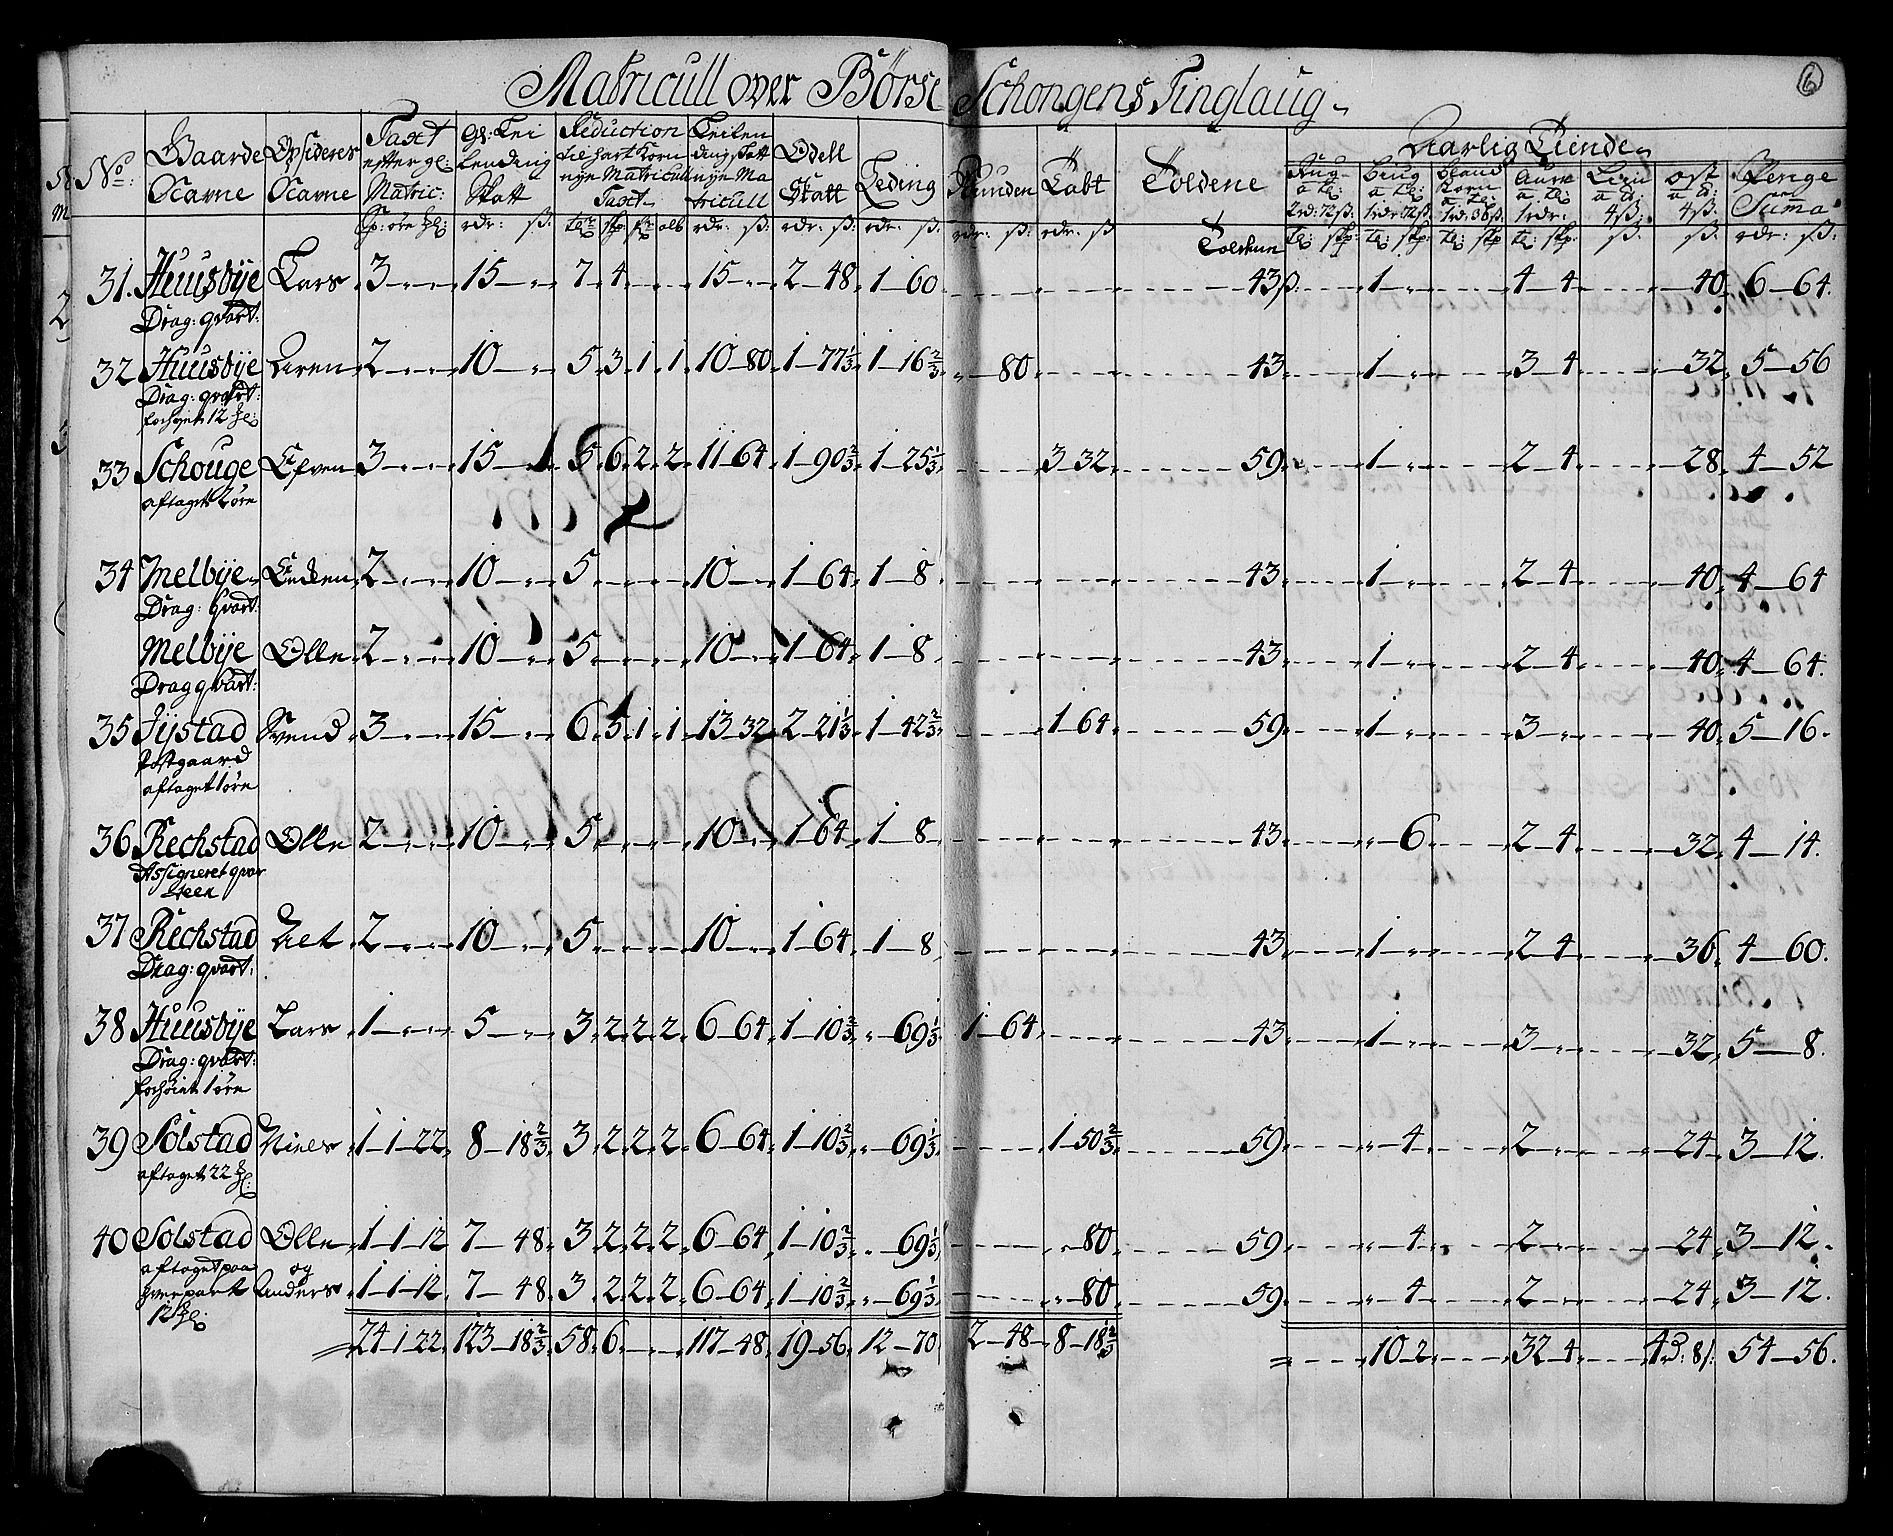 Matricull over Börse Schongens Tinglaug
6
No: Gaarde Opsideres Taxt Gl: Lei Reduction Leilen Odell Leding Vunden Tabt Toldene Aarlig Tiende
Nafne Nafne efter gl: Lending til hart Korn ding skatt Skatt Rug Biug Bland Aure Liin ost Penge
Matric: Skatt nye Matricull nye Ma Korn Summa
Taxt tricull
31. Huusbÿe Lars 3 15 7 4 15 2 48 1 60 43ß 1 4 4 40 6 64.
Drag: qvart:
32 Huusbÿe Aren 2 10 5 3 1 1 10 80 1 77 1/3 1 16 2/3 80 43 1 3 4 32 5 56
Drag: qvart:
forhøÿet 12
33 Schouge Efven 3 15 5 6 2 2 11 64 1 90 2/3 1 25 1/3 3 32 59 1 2 4 28 4 52
aftaget 2 øre
34 Melbÿe 2 10 5 10 1 64 1 8 43 1 2 4 40 4 64
Drag: Qvart:
Melbÿe Olle 2 10 5 10 1 64 1 8 43 1 2 4 40 4 64.
Drag qvart:
35 Jÿstad Svend 3 15 6 5 1 1 13 32 2 21 1/3 1 42 2/3 1 64 59 1 3 40 5 16.
Postgaard
aftaget 1 øre
36 Rechstad Olle 2 10 5 10 1 64 1 8 43 6 2 4 32 4 14.
Assigneret qvar
teer
37 Rechstad 2 10 5 10 1 64 1 8 43 1 2 4 36 4 60.
Drag: qvart:
38 Huusbÿe Lars 1 5 3 2 2 2 6 64 1 10 2/3 69 1/3 1 64 43 1 3 32 5 8.
Drag: qvart:
forhøiet 1 øre
39 Solstad Niels 1 1 22 8 18 2/3 3 2 2 2 6 64 1 10 2/3 69 1/3 1 50 2/3 59 4 2 24 3 12.
aftaget 22
40 Solstad Olle 1 1 12 7 48 3 2 2 2 6 64 1 10 2/3 69 1/3 80 59 4 2 24 3 12.
aftaget paa og
hver part Anders 1 1 12 7 48 3 2 2 2 6 64 1 10 2/3 69 1/3 80 59 4 2 24 3 12.
12
24 1 22 123 18 2/3 58 6 117 48 19 56 12 70 2 48 8 18 2/3 10 2 32 4 54 56.